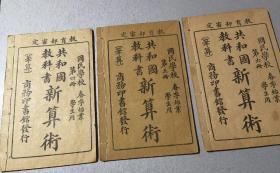 定審部育教
國民學校 春季始業 學生用
第四冊
共和國教科書 新算術
(筆算) 商務印書館發行
定審部育教
國民學校 春季始業 學生用
共和國教科書 新算術
(筆算) 商務印書館發行
定審部育教
國民學校 春季始業 學生用
第六冊
共和國教科書 新算術
(筆算) 商務印書館發行